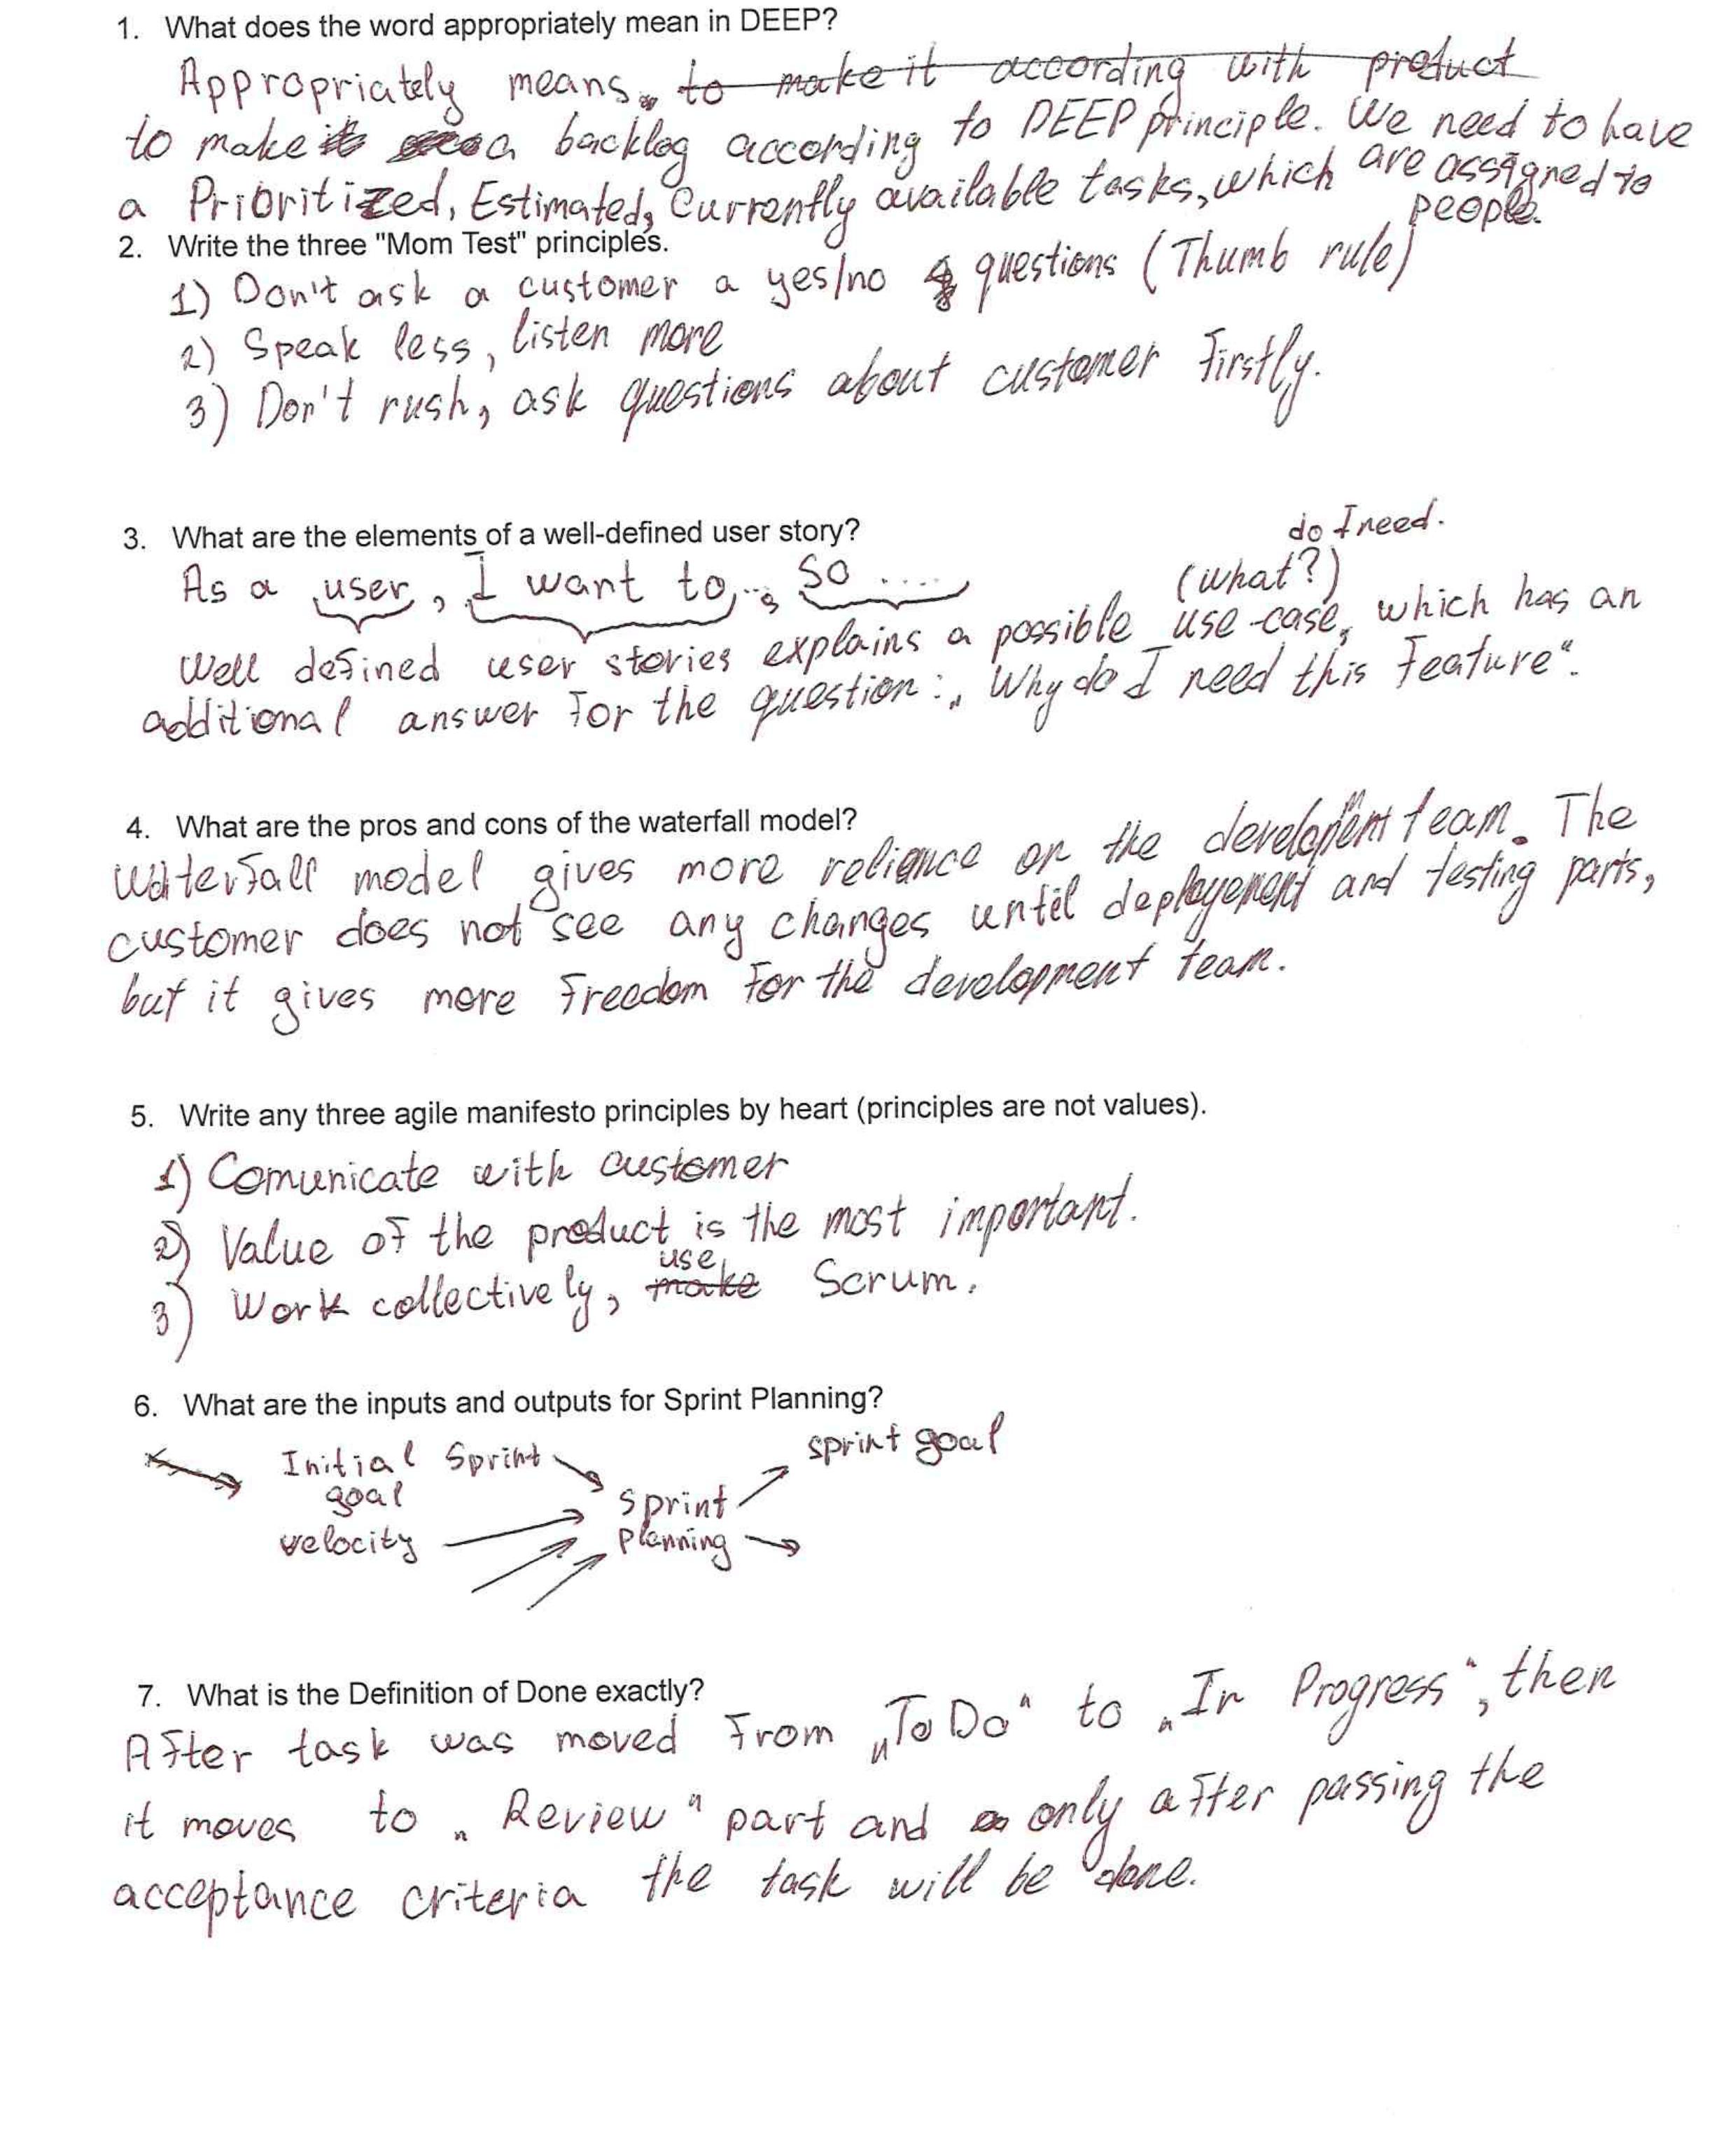 1. What does the word appropriately mean in DEEP?
Appropriately means to make it according with product
to make it a backlog according to DEEP principle. We need to have
a Prioritized, Estimated, Currently available tasks, which are assigned to
people.
2. Write the three "Mom Test" principles.
1) Don't ask a customer a yes/no questions (Thumb rule)
2) Speak less, listen more
3) Don't rush, ask questions about customer firstly.
3. What are the elements of a well-defined user story?
As a user, I want to..., so ....
do I need.
(what?)
Well defined user stories explains a possible use-case, which has an
additional answer for the question: „Why do I need this feature“.
4. What are the pros and cons of the waterfall model?
Waterfall model gives more reliance on the development team. The
customer does not see any changes until deployement and testing parts,
but it gives more freedom for the development team.
5. Write any three agile manifesto principles by heart (principles are not values).
1) Comunicate with customer
2) Value of the product is the most important.
use
3) Work collectively, make Scrum.
6. What are the inputs and outputs for Sprint Planning?
Initial Sprint
goal
velocity
sprint
planning
sprint goal
7. What is the Definition of Done exactly?
After task was moved from „To Do“ to „In Progress“, then
it moves to „Review“ part and only after passing the
acceptance criteria the task will be done.